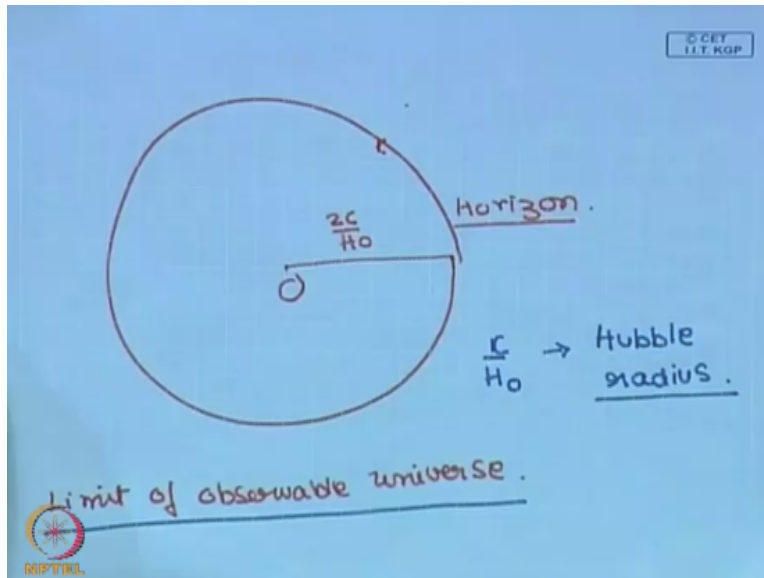 © CET
I.I.T. KGP
2C
H0
Horizon.
O
C → Hubble
H0 radius.
Limit of observable universe.
NPTEL